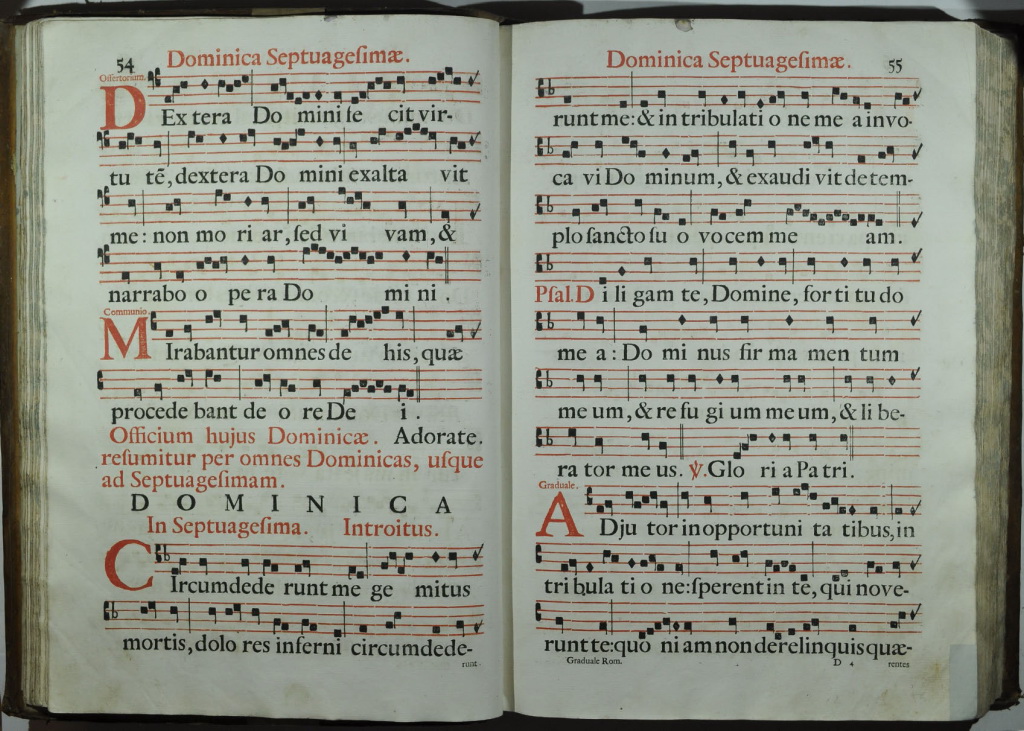 54
Dominica Septuagesimæ.
Offertorium.
DExtera Domini fecit vir-
tutē, dextera Domini exaltavit
me: non moriar, sed vivam, &
narrabo opera Domini.
Communio.
MIrabantur omnes de his, quæ
procedebant de ore Dei.
Officium hujus Dominicæ. Adorate.
resumitur per omnes Dominicas, usque
ad Septuagesimam.
DOMINICA
In Septuagesima. Introitus.
CIrcumdederunt me gemitus
mortis, dolores inferni circumdede-
runt
Dominica Septuagesimæ.
55
runt me: & in tribulatione mea invo-
cavi Dominum, & exaudivit de tem-
plo sancto suo vocem meam.
Psal. Diligam te, Domine, fortitudo
mea: Dominus firmamentum
meum, & refugium meum, & libe-
rator meus. ℣. Gloria Patri.
Graduale.
ADjutor in opportunitatibus, in
tribulatione: sperent in te, qui nove-
runt te: quoniam non derelinquis quæ-
Graduale Rom.
D 4
rentes